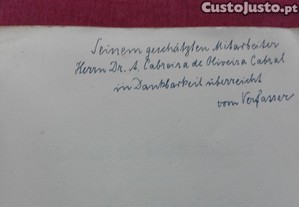 CustoJusto.pt
Seinem geschätzten Mitarbeiter
Herrn Dr. A. Cabreira de Oliveira Cabral
in Dankbarkeit überreicht
vom Verfasser